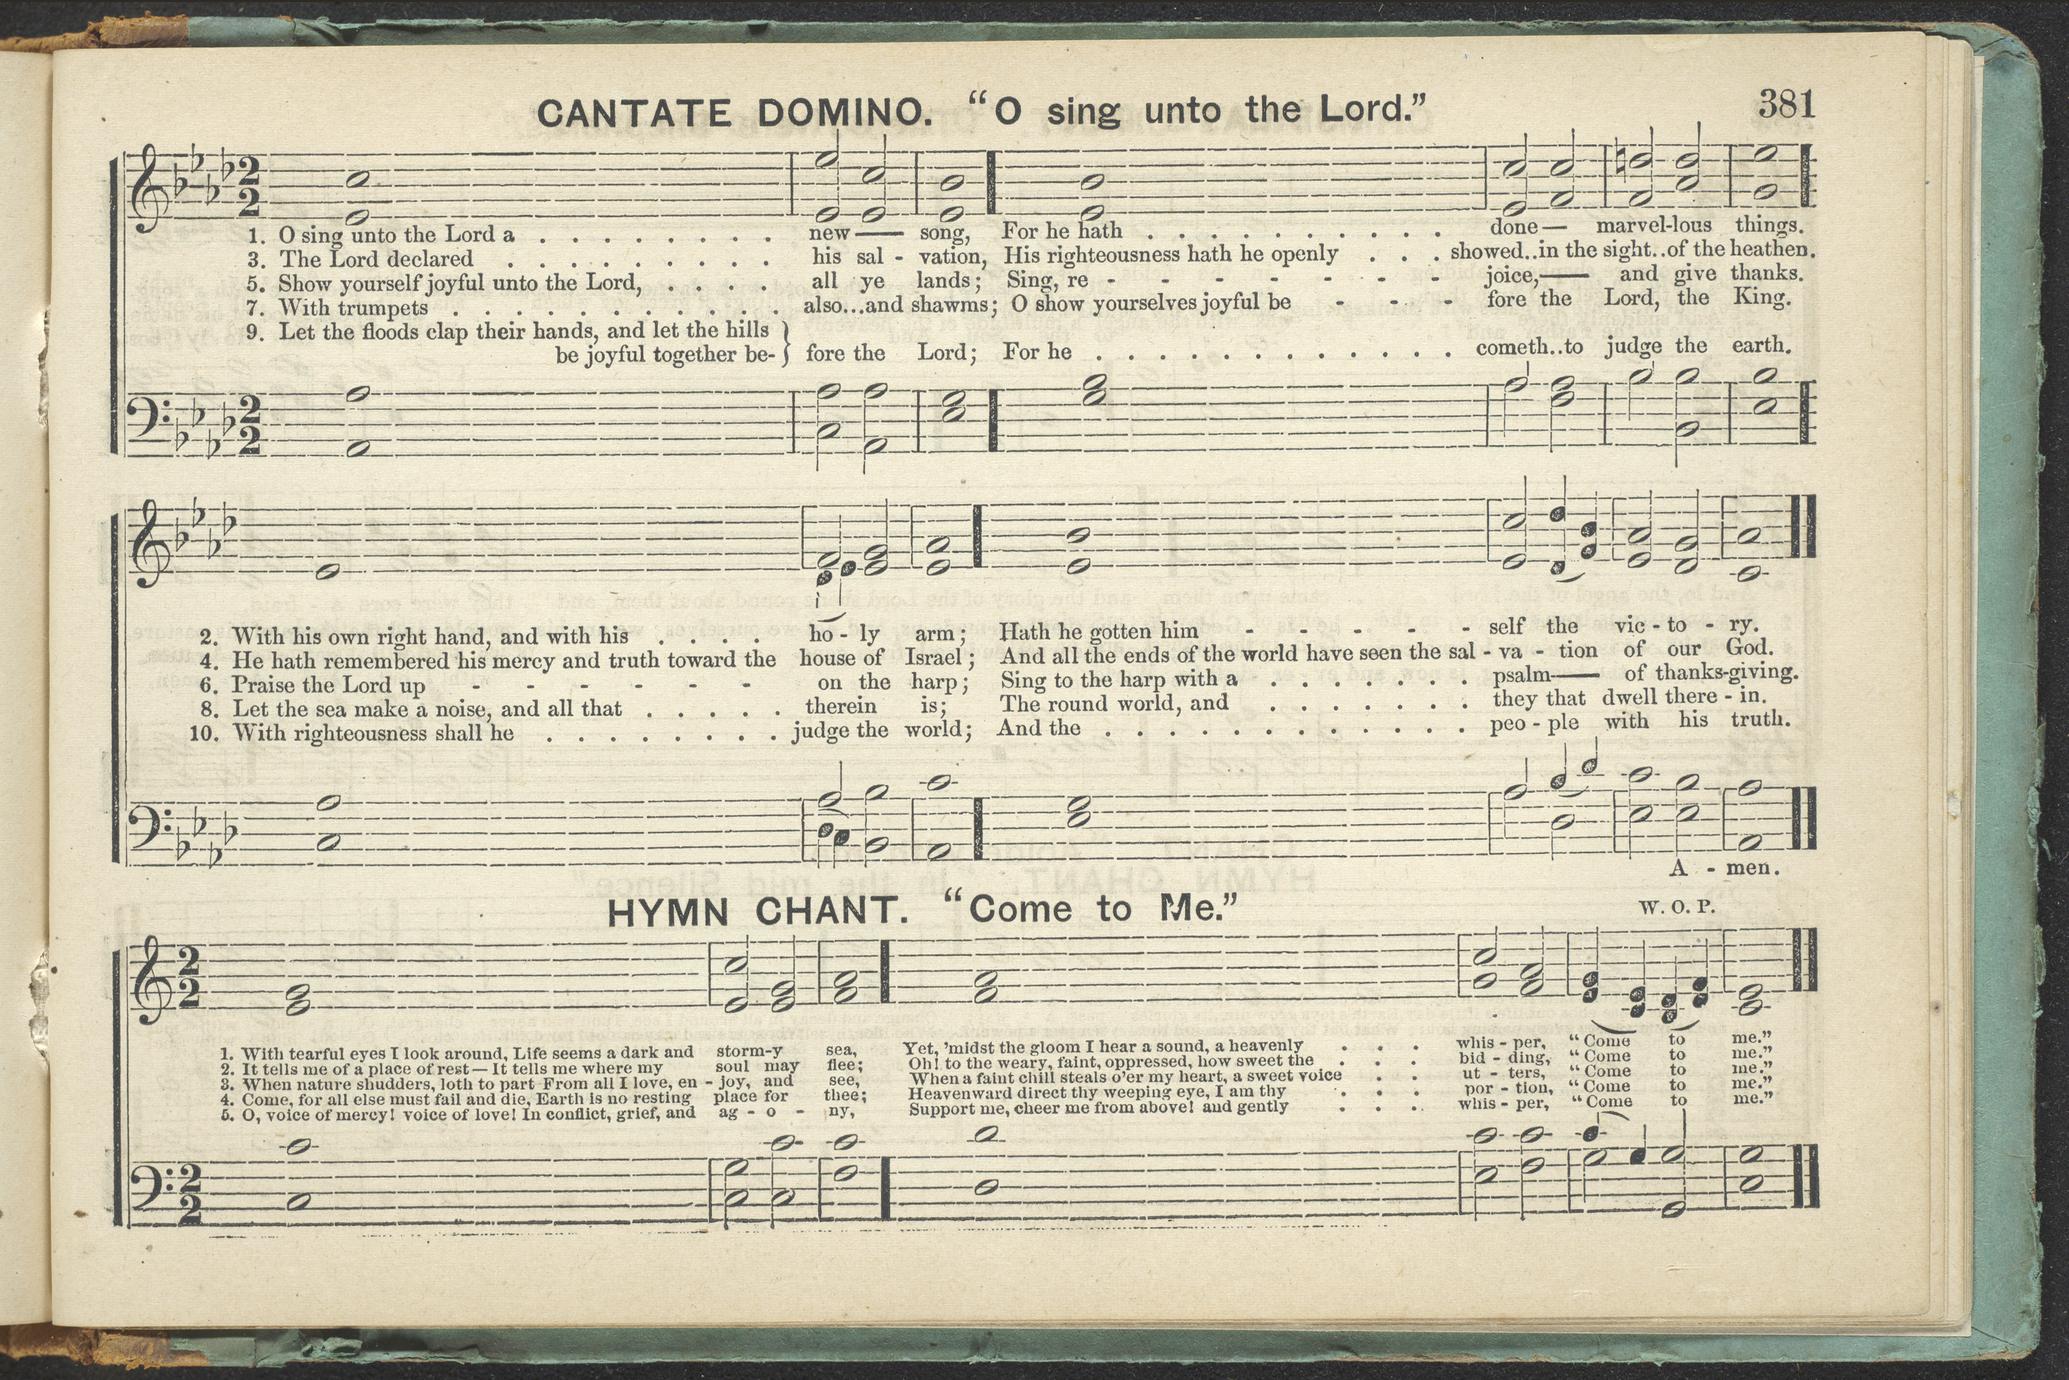 CANTATE DOMINO. “O sing unto the Lord.”
381
1. O sing unto the Lord a . . . . . . . new — song, For he hath . . . . . . . . . . done — marvel-lous things.
3. The Lord declared . . . . . . . . his sal - vation, His righteousness hath he openly . . . showed..in the sight..of the heathen.
5. Show yourself joyful unto the Lord, . . . . all ye lands; Sing, re - - - - - - - - - joice, — and give thanks.
7. With trumpets . . . . . . . . . . also...and shawms; O show yourselves joyful be - - - - fore the Lord, the King.
9. Let the floods clap their hands, and let the hills
be joyful together be- } fore the Lord; For he . . . . . . . . . . . . cometh..to judge the earth.
2. With his own right hand, and with his . . . . ho - ly arm; Hath he gotten him - - - - - - self the vic - to - ry.
4. He hath remembered his mercy and truth toward the house of Israel; And all the ends of the world have seen the sal - va - tion of our God.
6. Praise the Lord up - - - - - - on the harp; Sing to the harp with a . . . . . . . psalm — of thanks-giving.
8. Let the sea make a noise, and all that . . . . . therein is; The round world, and . . . . . . . they that dwell there - in.
10. With righteousness shall he . . . . . . . . judge the world; And the . . . . . . . . . . . . peo - ple with his truth.
A - men.
HYMN CHANT. “Come to Me.”
W. O. P.
1. With tearful eyes I look around, Life seems a dark and storm-y sea, Yet, ’midst the gloom I hear a sound, a heavenly . . . whis - per, “Come to me.”
2. It tells me of a place of rest— It tells me where my soul may flee; Oh! to the weary, faint, oppressed, how sweet the . . . bid - ding, “Come to me.”
3. When nature shudders, loth to part From all I love, en - joy, and see, When a faint chill steals o’er my heart, a sweet voice . . ut - ters, “Come to me.”
4. Come, for all else must fail and die, Earth is no resting place for thee; Heavenward direct thy weeping eye, I am thy . . . por - tion, “Come to me.”
5. O, voice of mercy! voice of love! In conflict, grief, and ag - o - ny, Support me, cheer me from above! and gently . . . whis - per, “Come to me.”